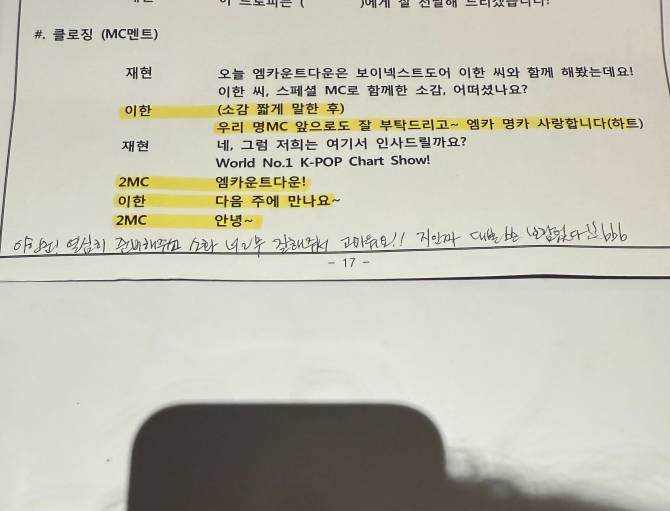 이 트로피는 ( )에게 잘 전달해 드리겠습니다!
#. 클로징 (MC멘트)
재현 오늘 엠카운트다운은 보이넥스트도어 이한 씨와 함께 해봤는데요!
이한 씨, 스페셜 MC로 함께한 소감, 어떠셨나요?
이한 (소감 짧게 말한 후)
우리 명MC 앞으로도 잘 부탁드리고~ 엠카 명카 사랑합니다(하트)
재현 네, 그럼 저희는 여기서 인사드릴까요?
World No.1 K-POP Chart Show!
2MC 엠카운트다운!
이한 다음 주에 만나요~
2MC 안녕~
열심히 준비해주고 너무 잘해주서 고마워요!!
- 17 -